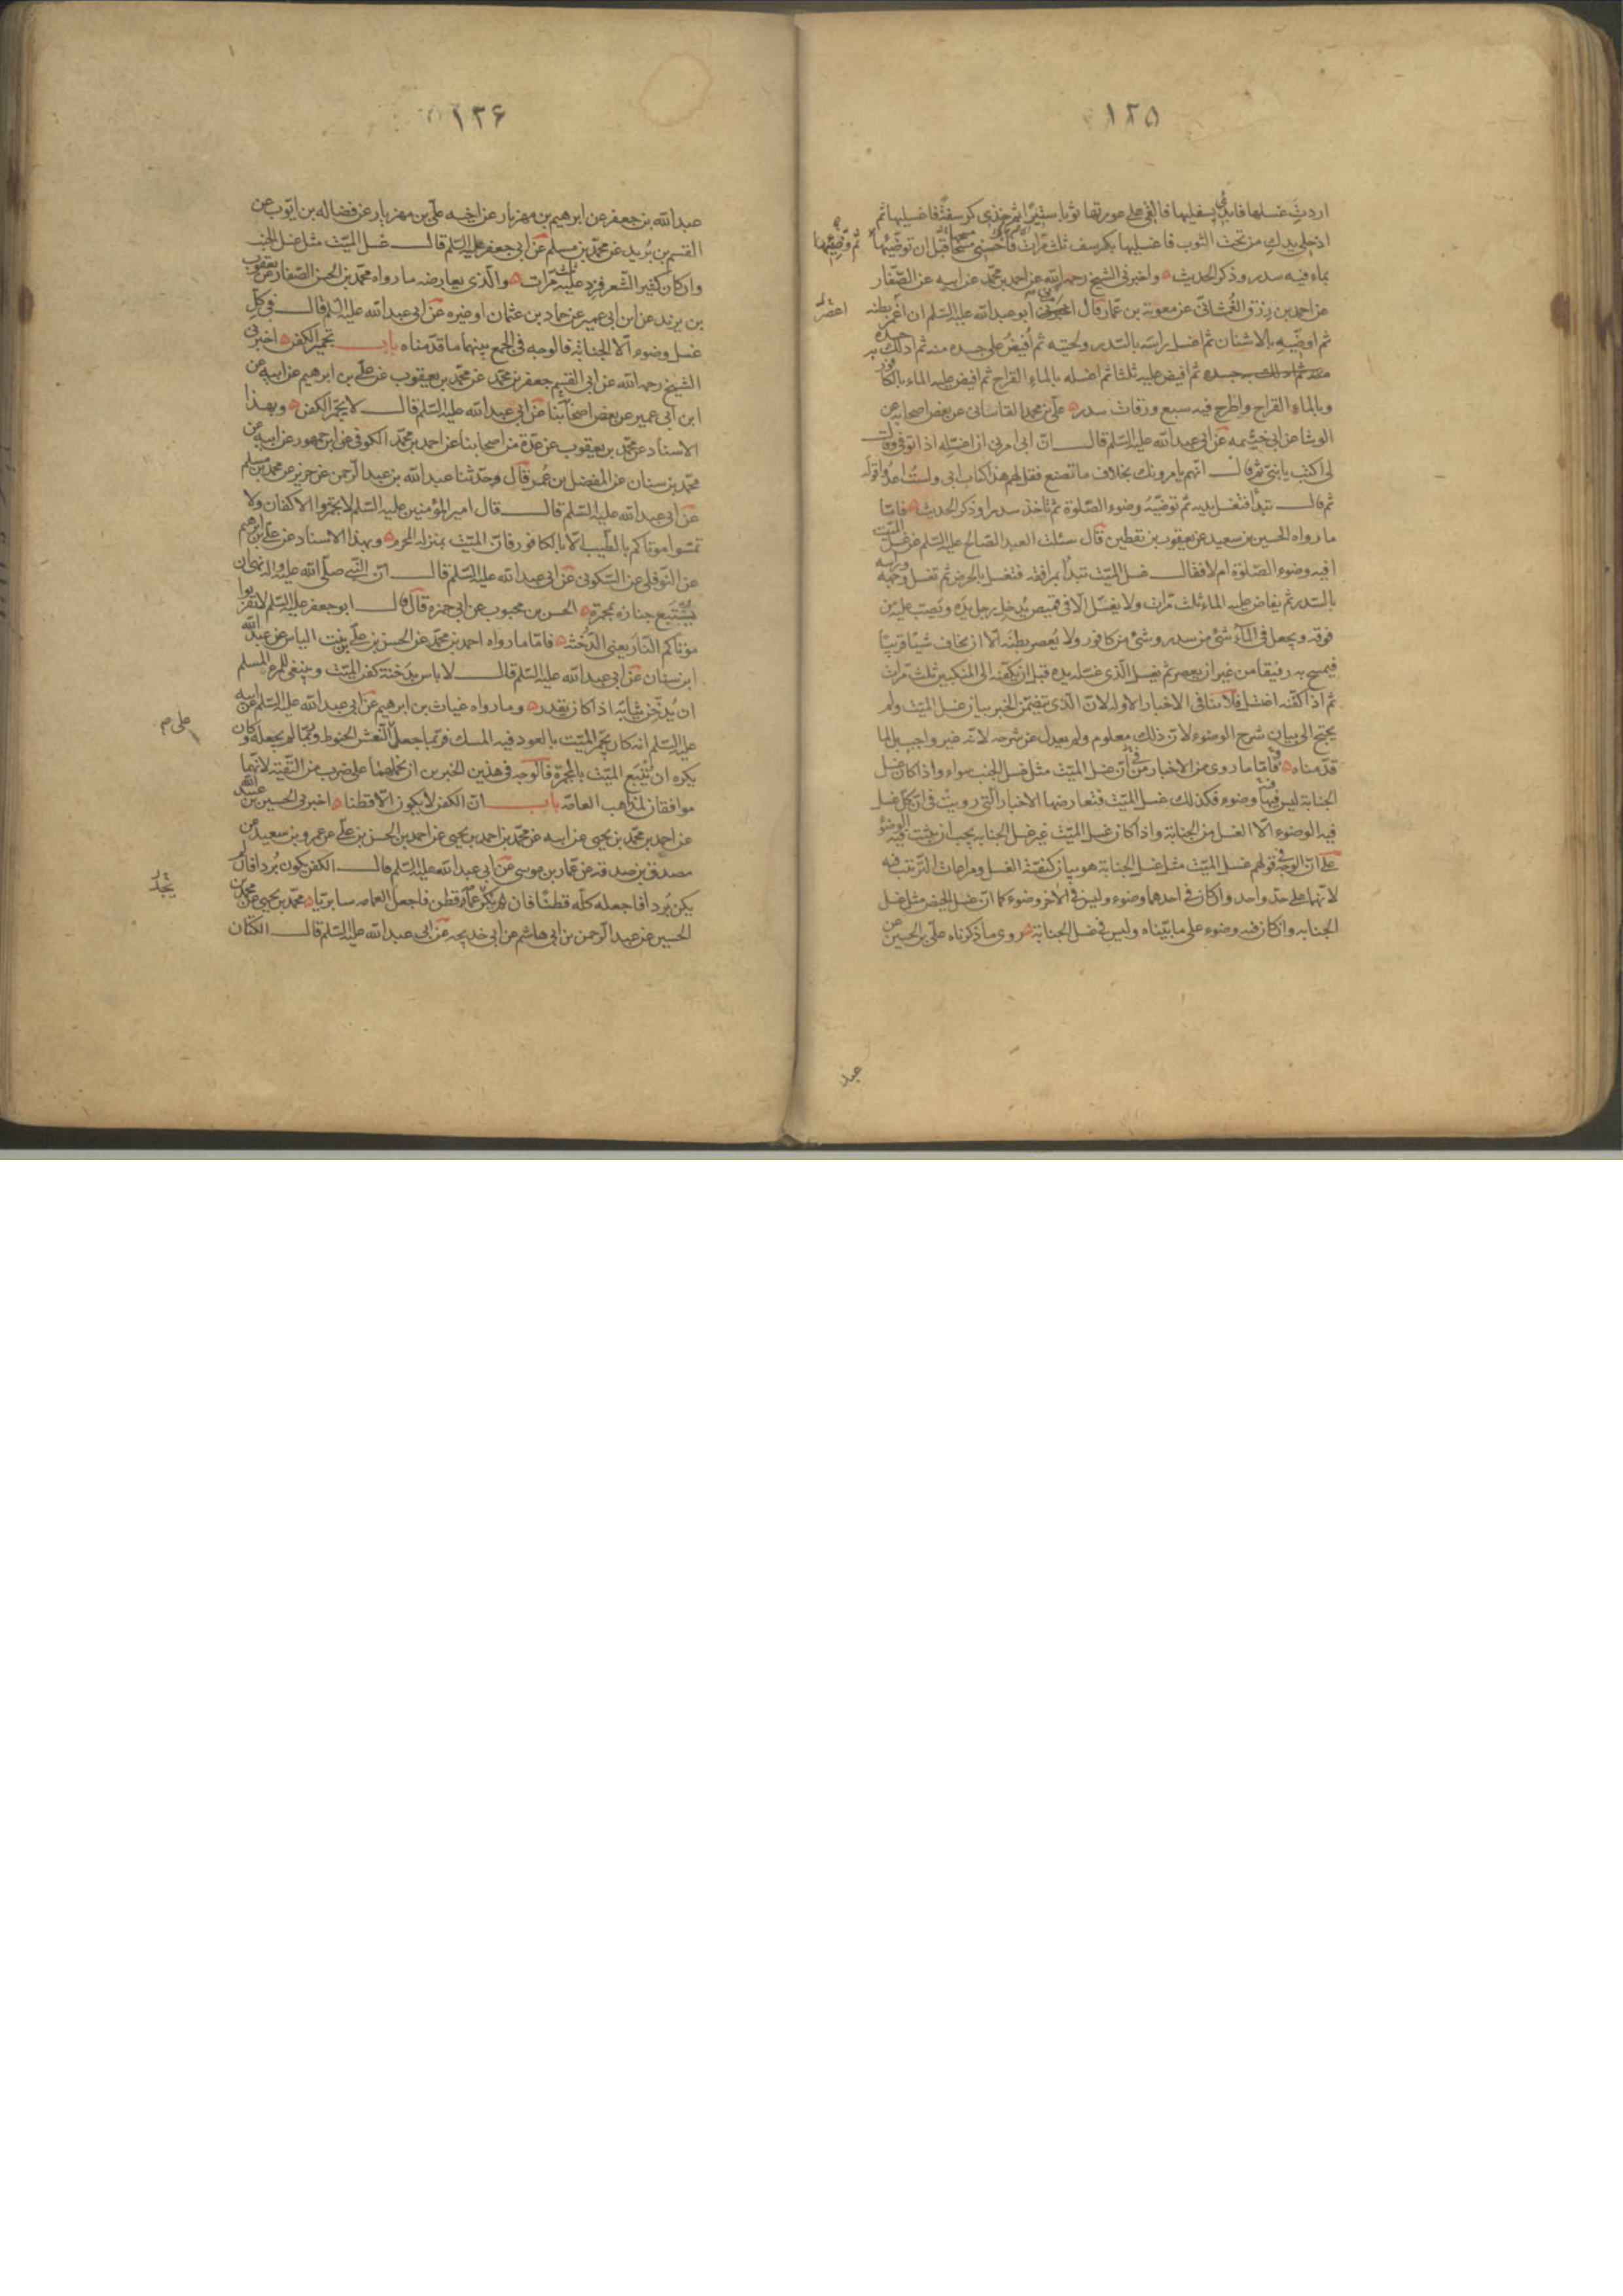 ١٢٥
اردتِ غسلها فابدئى بسفليها فالقى على عورتها ثوبا ستيرًا ثم خذى كرسفة فاغسليها ثم
ادخلى يدك من تحت الثوب فاغسليها بكرسف ثلث مرات فاحسنى مسحها قبل ان توضّئيها ثم وضّئيها
بماء فيه سدر وذكر الحديث واخبرنى الشيخ رحمه الله عن احمد بن محمّد عن ابيه عن الصّفّار
عن احمد بن رزق الغُمشانى عن معوية بن عمّار قال امرنى ابو عبد الله عليه السّلم ان اغمز بطنه
اعصر
ثم اوضّيه بالاشنان ثم اغسل راسه بالسّدر ولحيته ثم اُفيض على جسده منه ثم ادلك به جسده
ثم افيض عليه ثلثا ثم اغسله بالماء القراح ثم افيض عليه الماء بالكافور
وبالماء القراح واطرح فيه سبع ورقات سدر علىّ بن محمد القاسانى عن بعض اصحابه عن
الوشّا عن ابى خيثمه عن ابى عبد الله عليه السّلم قال انّ ابى امرنى ان اغسّله اذا توفى وقال
لى اكتب يا بنىّ ثم قال انهم يامرونك بخلاف ما تصنع فقل لهم هذا كتاب ابى ولستُ اعدُو قوله
ثم قال تبدأ فتغسل يديه ثم توضّيه وضوء الصّلوة ثم تاخذ سدرا وذكر الحديث فامّا
ما رواه الحسين بن سعيد عن يعقوب بن يقطين قال سئلت العبد الصّالح عليه السّلم عن غسل الميّت
افيه وضوء الصّلوة ام لا فقال غسل الميّت تبدأ بمرافقه فتغسل بالحرض ثم تغسل وجهه وراسه
بالسّدر ثم يفاض عليه الماء ثلث مرّات ولا يغسّل الّا فى قميص يُدخل رجل يده ويَصبّ عليه من
فوقه ويجعل فى الماء شئ من سدر وشئ من كافور ولا يُعصر بطنه الّا ان يخاف شيئا قريبا
فيمسح به رفيقا من غير ان يعصر ثم يغسل الّذى غسّله يده قبل ان يكفّنه الى المنكبين ثلث مرّات
ثم اذا كفّنه اغتسل فلا ينافى الاخبار الاوله لانّ الّذى تضمّن الخبر بيان غسل الميّت ولم
يحتج الى بيان شرح الوضوء لانّ ذلك معلوم ولم يعدل عن شرحه لانّه غير واجب بل لما
قدّمناه فامّا ما روى من الاخبار من انّ غسل الميّت مثل غسل الجنب سواء واذا كان غسل
الجنابة ليس فيها وضوء فكذلك غسل الميّت فتعارضها الاخبار الّتى رويت فى انّ كلّ غسل
فيه الوضوء الّا الغسل من الجنابة واذا كان غسل الميّت غير غسل الجنابه يجب ان يثبت فيه الوضوء
على انّ الوجه فى قولهم غسل الميّت مثل غسل الجنابة هو بيان كيفيّة الغسل ومراعات الترتيب فيه
لانّهما على حدّ واحد وان كان فى احدهما وضوء وليس فى الاخر وضوء كما انّ غسل الحيض مثل غسل
الجنابه وان كان فيه وضوء على ما بيّناه وليس فى غسل الجنابة روى ما ذكرناه علىّ بن الحسين عن
عبد
١٢۶
عبد الله بن جعفر عن ابرهيم بن مهزيار عن اخيه علىّ بن مهزيار عن فضاله بن ايّوب عن
القسم بن بُريد عن محمّد بن مسلم عن ابى جعفر عليه السّلم قال غسل الميّت مثل غسل الجنب
وان كان كثير الشّعر فزد عليه ثلث مرات والّذى يعارضه ما رواه محمّد بن الحسن الصّفار عن يعقوب
بن يزيد عن ابن ابى عمير عن حمّاد بن عثمان او غيره عن ابى عبد الله عليه السّلم قال فى كلّ
غسل وضوء الّا الجنابة فالوجه فى الجمع بينهما ما قدّمناه باب تجمير الكفن اخبرنى
الشيخ رحمه الله عن ابى القسم جعفر بن محمّد عن محمّد بن يعقوب عن علىّ بن ابرهيم عن ابيه عن
ابن ابى عمير عن بعض اصحابنا عن ابى عبد الله عليه السّلم قال لا يجمّر الكفن وبهذا
الاسناد عن محمّد بن يعقوب عن عدّة من اصحابنا عن احمد بن محمّد الكوفى عن ابن جمهور عن ابيه عن
محمّد بن سنان عن المفضل بن عُمر قال وحدّثنا عبد الله بن عبد الرّحمن عن حريز عن محمّد بن مسلم
عن ابى عبد الله عليه السّلم قال قال امير المؤمنين عليه السّلم لا تجمّروا الاكفان ولا
تمسّوا موتاكم بالطّيب الّا بالكافور فانّ الميّت بمنزله المحرم وبهذا الاسناد عن علىّ بن ابرهيم
عن النّوفلى عن السّكونى عن ابى عبد الله عليه السّلم قال انّ النّبى صلّى الله عليه واله نهى ان
يُتبَع جنازه بمجمرة الحسن بن محبوب عن ابى حمزه قال قال ابو جعفر عليه السّلم لا تقرّبوا
موتاكم النّار يعنى الدّخنة فامّا ما رواه احمد بن محمّد عن الحسن بن علىّ بن بنت الياس عن عبد الله
ابن سنان عن ابى عبد الله عليه السّلم قال لا باس بدخنة كفن الميّت وينبغى للمرء المسلم
ان يُدخّن ثيابه اذا كان يقدر وما رواه غياث بن ابرهيم عن ابى عبد الله عليه السّلم عن ابيه
عليه السّلم انه كان يجمّر الميّت بالعود فيه المسك فربّما جعل النّعش الحنوط وربّما لم يجعله وكان
على م
يكره ان يُتبع الميّت بالمجمرة فالوجه فى هذين الخبرين ان نحملهما على ضرب من التّقية لانّهما
موافقان لمذاهب العامّه باب انّ الكفن لا يكون الّا قطنا اخبرنى الحسين بن عبيد الله
عن احمد بن محمّد بن يحيى عن ابيه عن محمّد بن احمد بن يحيى عن احمد بن الحسن بن علىّ عن عمرو بن سعيد عن
مصدق بن صدقه عن عمّار بن موسى عن ابى عبد الله عليه السّلم قال الكفن يكون بُردا فان لم
يكن بُردا فاجعله كلّه قطنًا فان لم يكن عمامة قطن فاجعل العمامه سابريّا محمّد بن يحيى عن محمّد بن
الحسين عن عبد الرّحمن بن ابى هاشم عن ابى خديجه عن ابى عبد الله عليه السّلم قال الكتّان